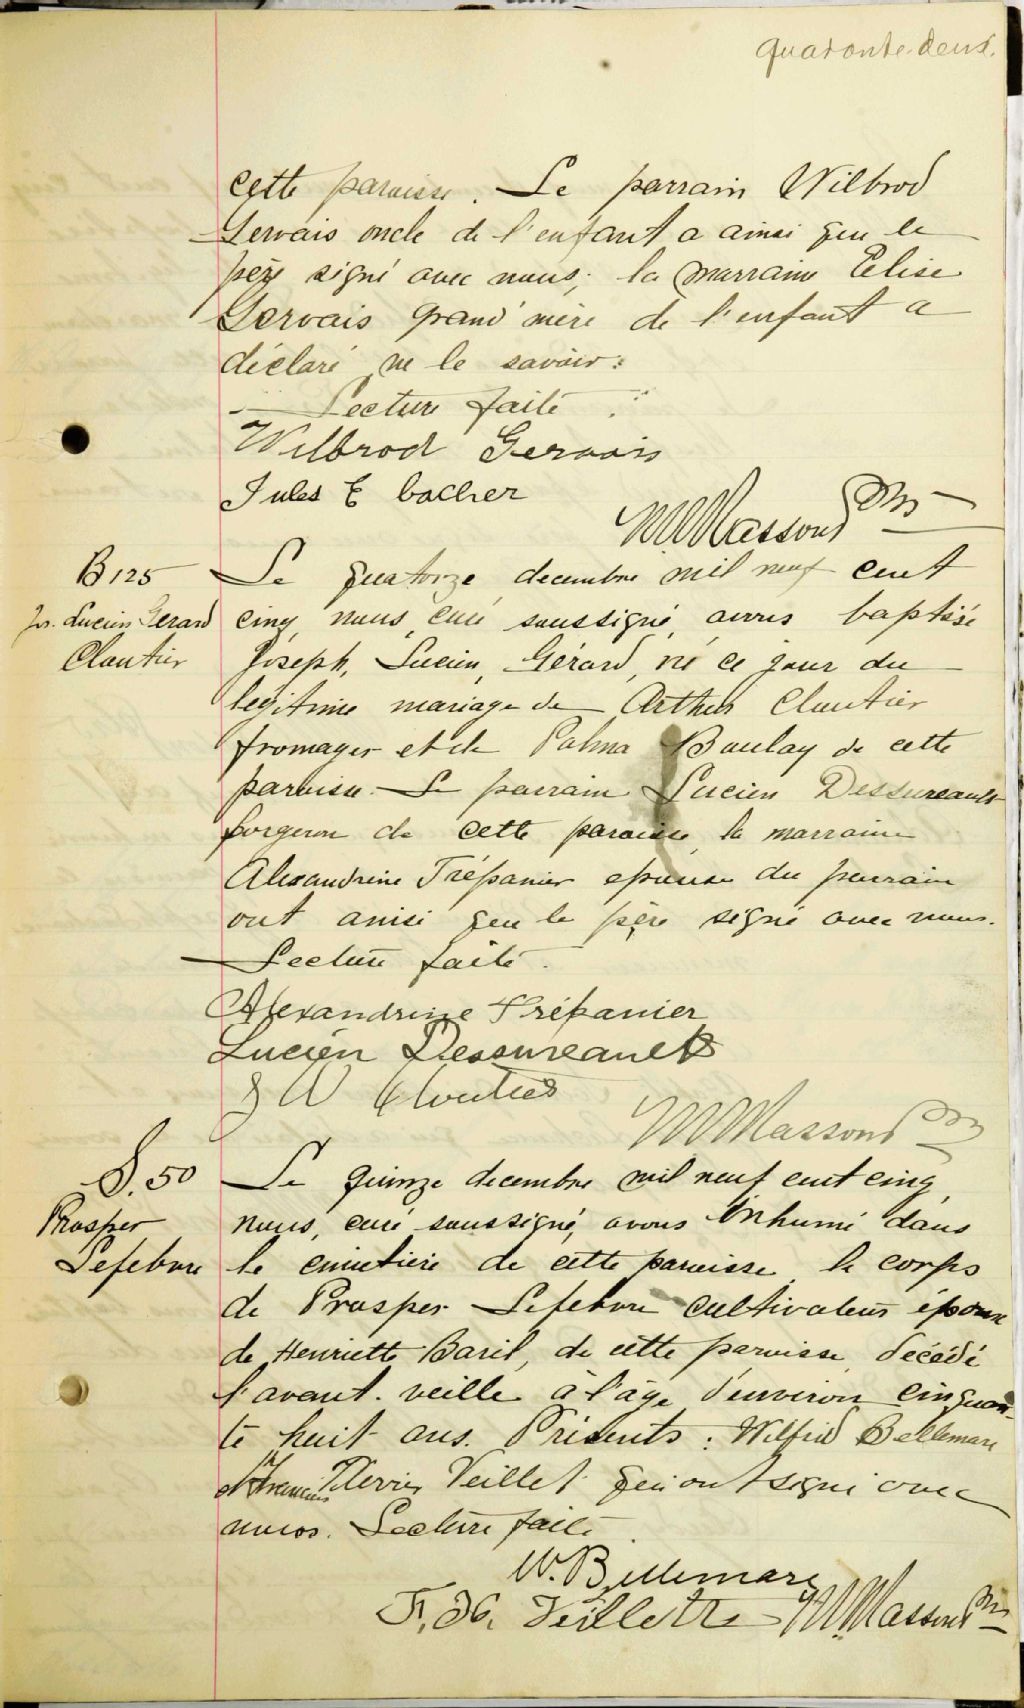 quaronte-deux.
cette paroisse. Le parrain Wilbrod
Gervais oncle de l'enfant a ainsi que le
père signé avec nous; la marraine Elise
Gervais grand'mère de l'enfant a
déclaré ne le savoir:
Lecture faite.
Wilbrod Gervais
Jules E
Masson Ptre
B 125
Jos. Lucien Gerard
Cloutier
Le quatorze decembre mil neuf cent
cinq, nous, curé soussigné, avons baptisé
Joseph, Lucien, Gérard, né ce jour du
légitime mariage de Arthur Cloutier
fromager et de Palma Boulay de cette
paroisse. Le parrain Lucien Dessureault
forgeron de cette paroisse, la marraine
Alexandrine Trépanier epouse du parrain
ont ainsi que le père signé avec nous.
Lecture faite.
Alexandrine Trépanier
Lucien Dessureault
J A Cloutier
Masson Ptre
S. 50
Prosper
Lefebvre
Le quinze decembre mil neuf cent cinq,
nous, curé soussigné, avons inhumé dans
le cimetière de cette paroisse, le corps
de Prosper Lefebvre cultivateur époux
de Henriette Baril, de cette paroisse, décédé
l'avant-veille à l'âge d'environ cinquan-
te huit ans. Présents: Wilfrid Bellemare
et François Xavier Veillet qui ont signé avec
nous. Lecture faite.
W. Bellemare
F. X. Veillette Masson Ptre